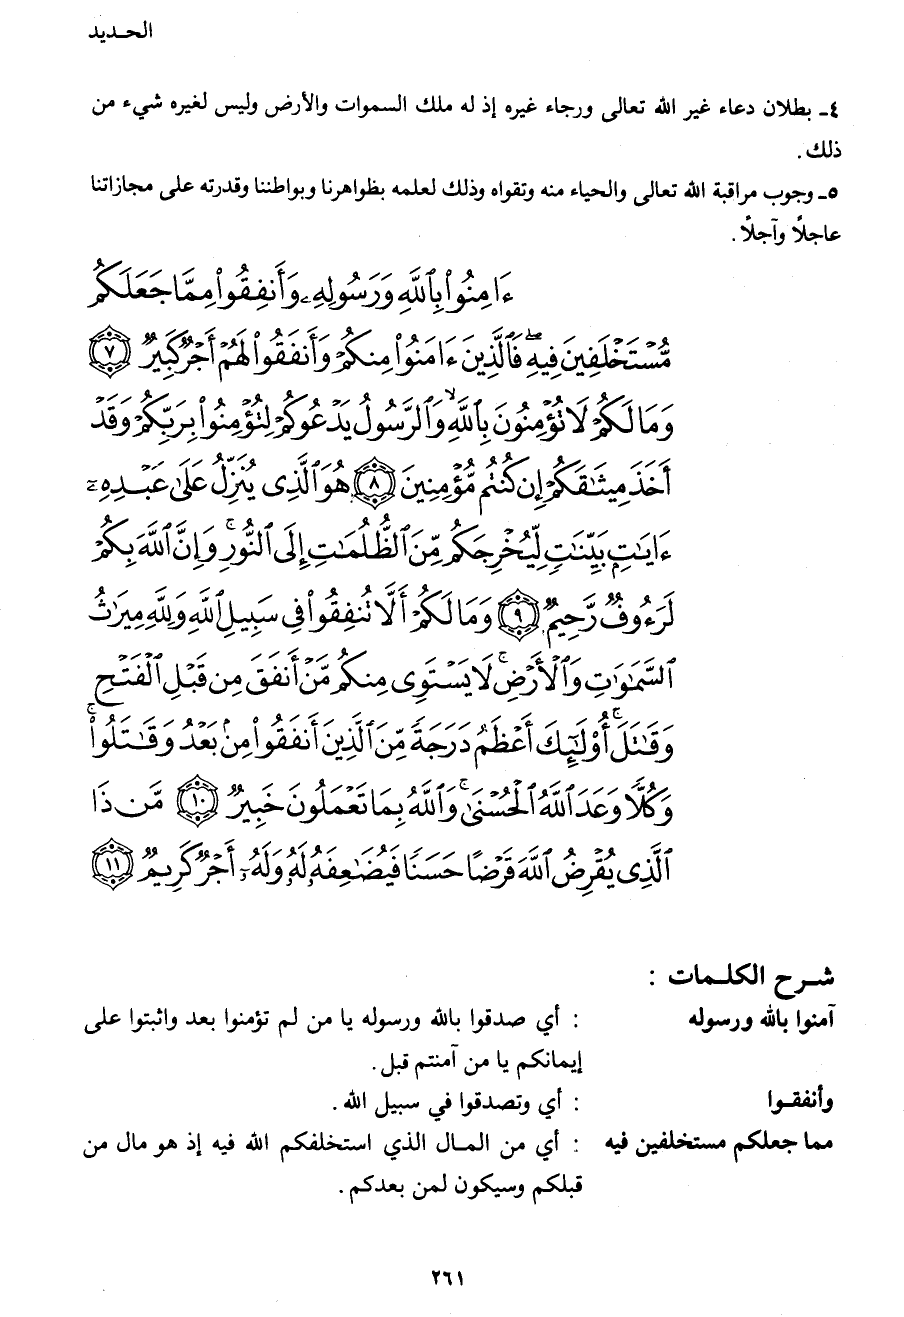 الحـديد
٤ـ بطلان دعاء غير الله تعالى ورجاء غيره إذ له ملك السموات والأرض وليس لغيره شيء من
ذلك .
٥ـ وجوب مراقبة الله تعالى والحياء منه وتقواه وذلك لعلمه بظواهرنا وبواطننا وقدرته على مجازاتنا
عاجلاً وآجلاً .
ءَامِنُوا۟ بِٱللَّهِ وَرَسُولِهِۦ وَأَنفِقُوا۟ مِمَّا جَعَلَكُم
مُّسْتَخْلَفِينَ فِيهِ ۖ فَٱلَّذِينَ ءَامَنُوا۟ مِنكُمْ وَأَنفَقُوا۟ لَهُمْ أَجْرٌ كَبِيرٌ ۝٧
وَمَا لَكُمْ لَا تُؤْمِنُونَ بِٱللَّهِ ۙ وَٱلرَّسُولُ يَدْعُوكُمْ لِتُؤْمِنُوا۟ بِرَبِّكُمْ وَقَدْ
أَخَذَ مِيثَٰقَكُمْ إِن كُنتُم مُّؤْمِنِينَ ۝٨ هُوَ ٱلَّذِى يُنَزِّلُ عَلَىٰ عَبْدِهِۦٓ
ءَايَٰتٍۭ بَيِّنَٰتٍ لِّيُخْرِجَكُم مِّنَ ٱلظُّلُمَٰتِ إِلَى ٱلنُّورِ ۚ وَإِنَّ ٱللَّهَ بِكُمْ
لَرَءُوفٌ رَّحِيمٌ ۝٩ وَمَا لَكُمْ أَلَّا تُنفِقُوا۟ فِى سَبِيلِ ٱللَّهِ وَلِلَّهِ مِيرَٰثُ
ٱلسَّمَٰوَٰتِ وَٱلْأَرْضِ ۚ لَا يَسْتَوِى مِنكُم مَّنْ أَنفَقَ مِن قَبْلِ ٱلْفَتْحِ
وَقَٰتَلَ ۚ أُو۟لَٰٓئِكَ أَعْظَمُ دَرَجَةً مِّنَ ٱلَّذِينَ أَنفَقُوا۟ مِنۢ بَعْدُ وَقَٰتَلُوا۟ ۚ
وَكُلًّا وَعَدَ ٱللَّهُ ٱلْحُسْنَىٰ ۚ وَٱللَّهُ بِمَا تَعْمَلُونَ خَبِيرٌ ۝١٠ مَّن ذَا
ٱلَّذِى يُقْرِضُ ٱللَّهَ قَرْضًا حَسَنًا فَيُضَٰعِفَهُۥ لَهُۥ وَلَهُۥٓ أَجْرٌ كَرِيمٌ ۝١١
شـرح الكلـمات :
آمنوا بالله ورسوله : أي صدقوا بالله ورسوله يا من لم تؤمنوا بعد واثبتوا على
إيمانكم يا من آمنتم قبل .
وأنفقـوا : أي وتصدقوا في سبيل الله .
مما جعلكم مستخلفين فيه : أي من المـال الذي استخلفكم الله فيه إذ هو مال من
قبلكم وسيكون لمن بعدكم .
٢٦١